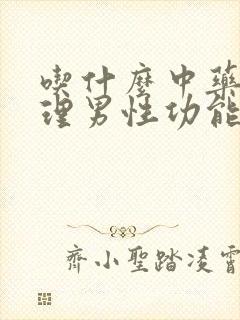 喫什麼中藥
理男性功能
齊小聖踏凌霄